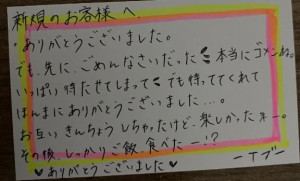 新規のお客様へ
ありがとうございました。
でも、先に、ごめんなさいだった 本当にゴメンね。
いっぱい待たせてしまって でも待っててくれて
ほんまにありがとうございました...。
お互いきんちょうしちゃったけど、楽しかったネー。
その後、しっかりご飯、食べたー!?
♥ありがとうございました♥